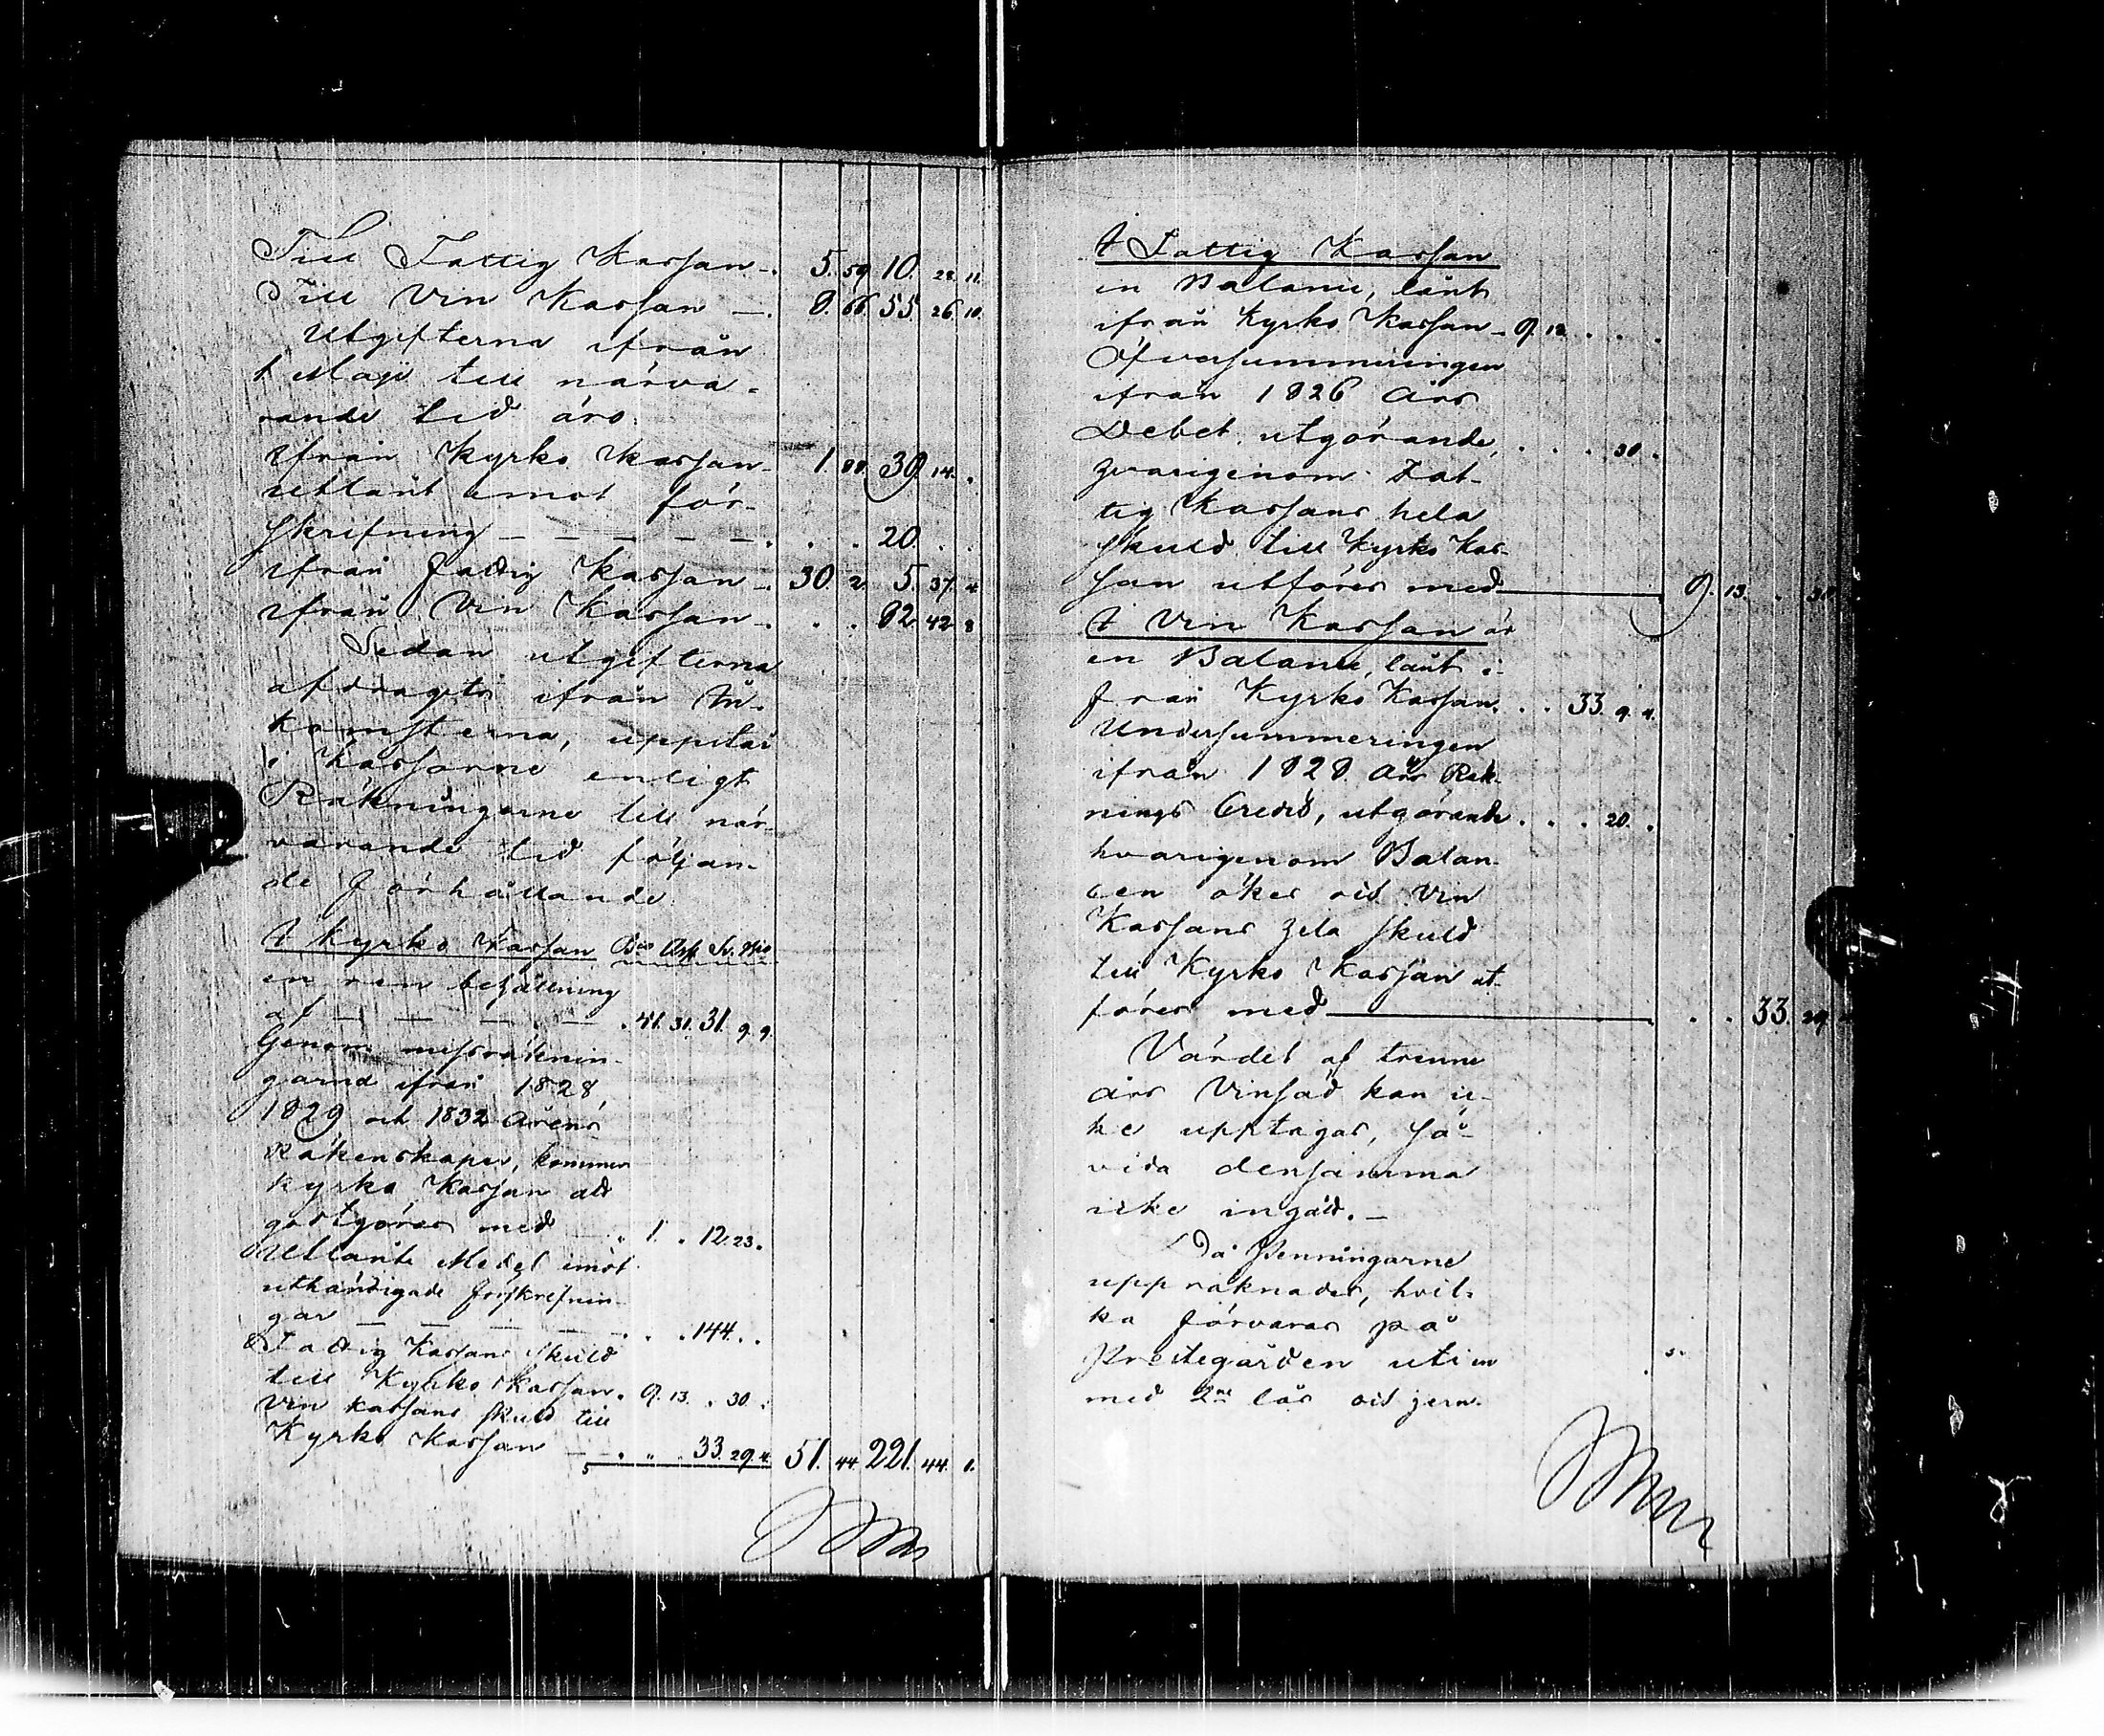 Till Fattig Kassan 5. 59. 10. 28. 11.
Till Vin Kassan 8. 66. 55. 26. 10.
Utgifterna ifrån
1 Maji till närva-
rande tid äro.
ifrån Kyrko Kassan 1. 88. 39. 14.
utlånt emot för-
skrifning 20.
ifrån Fattig Kassan 30. 2. 5. 37. 4
ifrån Vin Kassan 82. 42. 8
Sedan utgifterna
afdragits ifrån In-
komsterna, uppstår
i Kassorne enligt
Räkningarne till när-
varande tid följan-
de förhållande
I Kyrko Kassan
en ren behållning
af 41. 31. 31. 9. 9.
Genom missräknin-
garne ifrån 1828,
1829 och 1832 Årens
Räkenskaper, kommer
Kyrko Kassan att
godtgöras med 1. 12. 23.
Utlånte Medel imot
uthändigade förskrifnin-
gar 144.
Fattig Kassans skuld
till Kyrko Kassan. 9. 13. 30.
Vin Kassans skuld till
Kyrko Kassan 33. 29. 4. 51. 44. 221. 44. 1.
I Fattig Kassan
en Balance, lånt
ifrån Kyrko Kassan 9. 13
Öfversummeringen
ifrån 1826 Års
Debet, utgörande, 30.
hvarigenom Fat-
tig Kassans hela
skuld till Kyrko Kas-
san utföres med 9. 13. 30
I Vin Kassan är
en Balance, lånt i-
från Kyrko Kassan. 33. 9. 4.
Undersummeringen
ifrån 1828 Års Räk-
nings Credit, utgörande 20.
hvarigenom Balan-
cen ökes och Vin
Kassans hela skuld
till Kyrko Kassan ut-
föres med 33. 29
Värdet af trenne
års Vinsäd kan ic-
ke upptagas, så-
vida densamma
icke ingått.
Då Penningarne
uppräknades, hvil-
ka förvaras på
Prestegården uti en
med 2ne lås och jern-